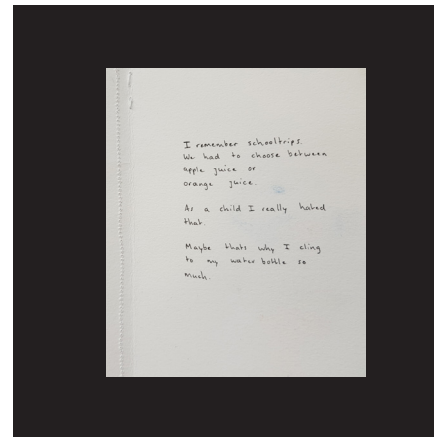 I remember schooltrips.
We had to choose between
apple juice or
orange juice.
As a child I really hated
that.
Maybe thats why I cling
to my water bottle so
much.